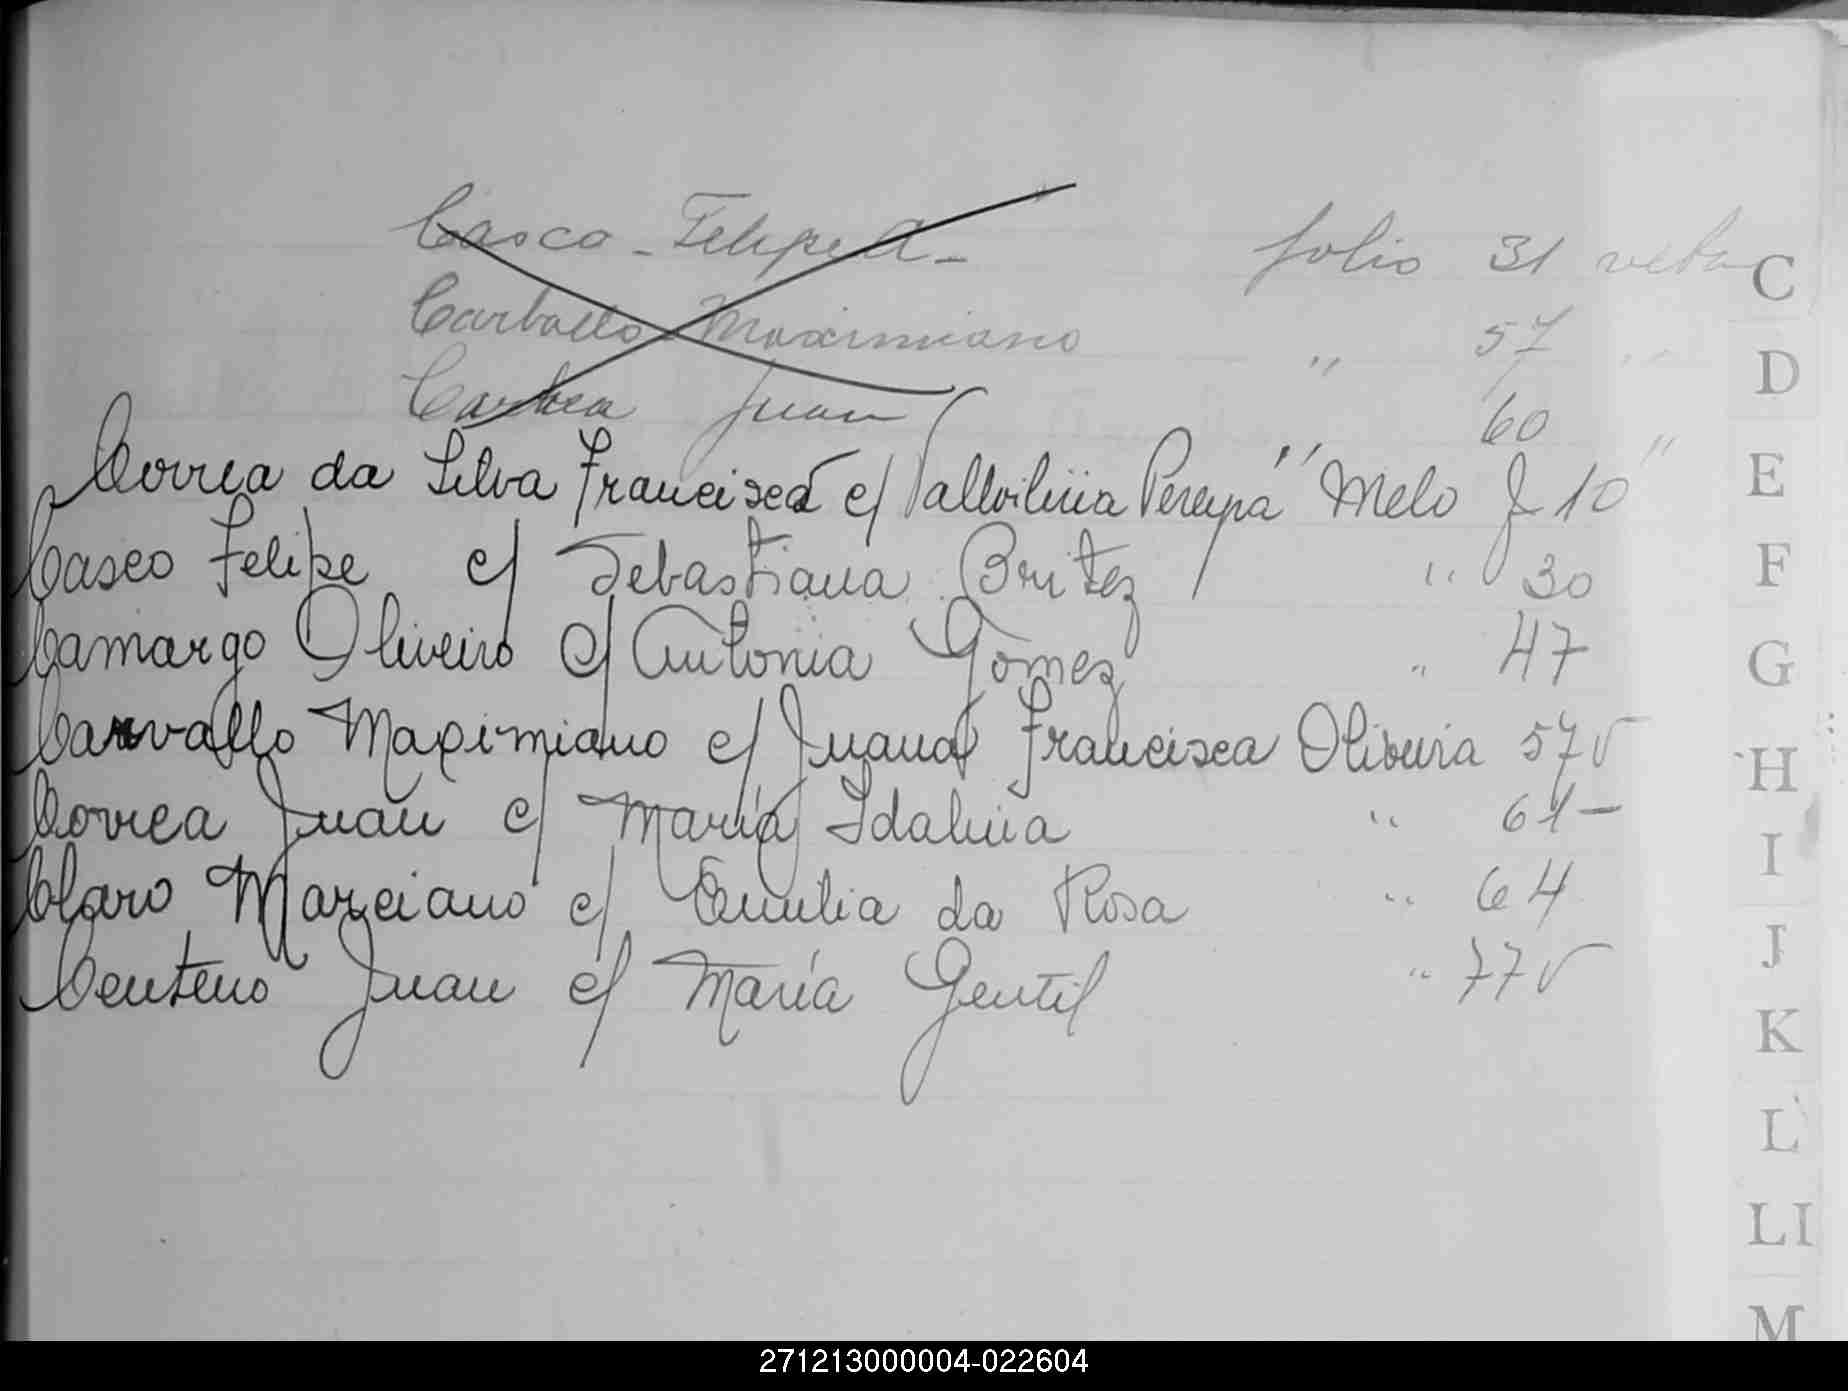 Casco - Felipe A - folio 31 velta
Carballo Maximiano " 57 "
Correa Juan " 60 "
Correa da Silva Francisca c/ Pereyra Melo F 10
Casco Felipe c/ Sebastiana Britez " 30
Camargo Oliveiro c/ Antonia Gomez " 47
Carvallo Maximiano c/ Juana Francisca Oliveira 57 v
Correa Juan c/ María Idalina " 61 -
Claro Marciano c/ Emilia da Rosa " 64
Centeno Juan c/ María Gentil " 77 v
C
D
E
F
G
H
I
J
K
L
Ll
M
271213000004-022604